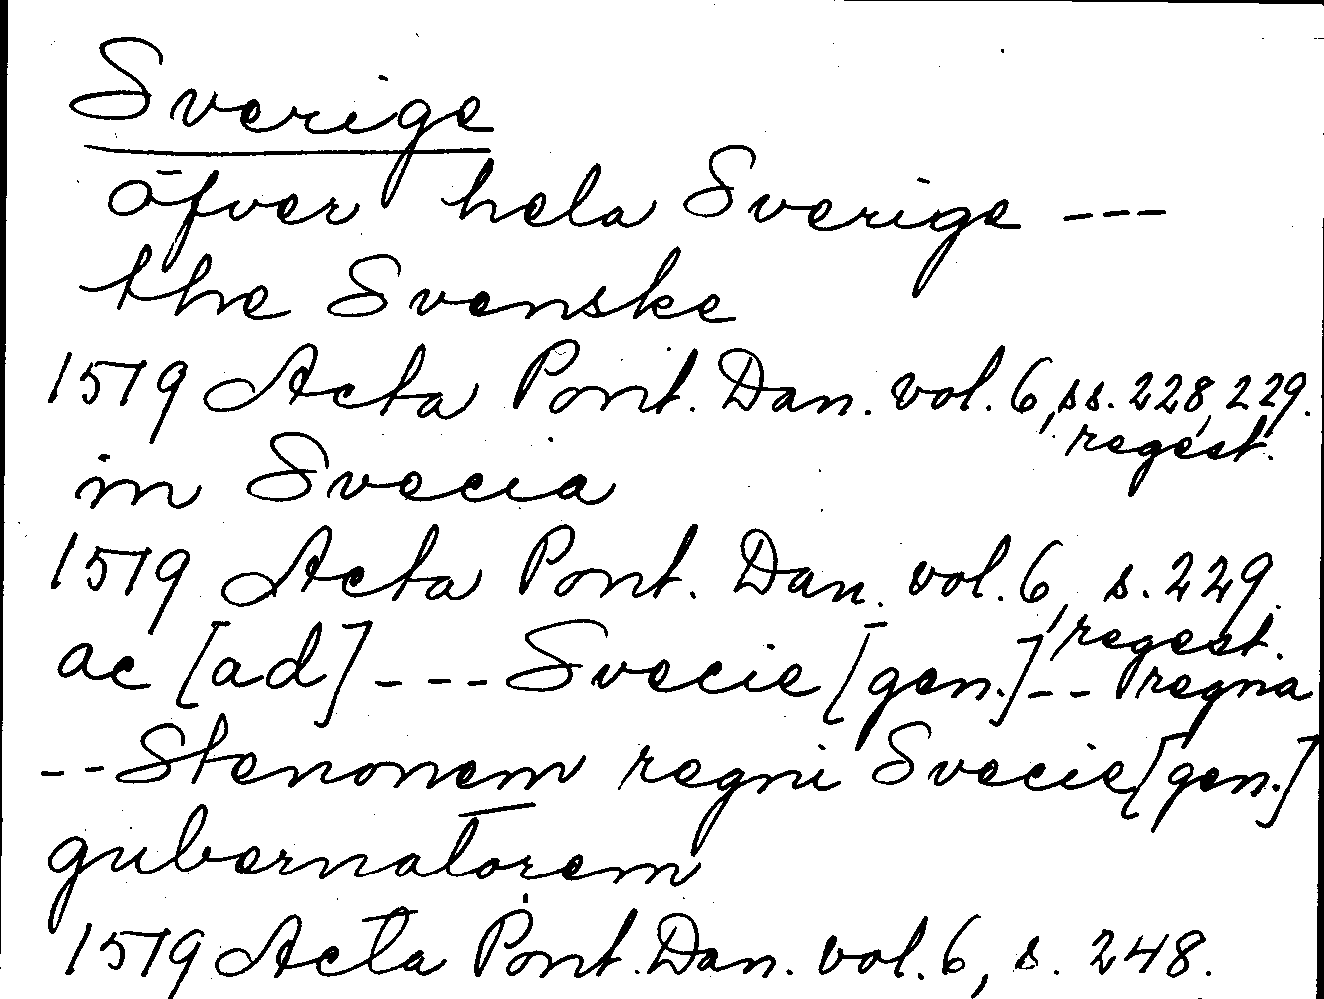 Sverige
öfver hela Sverige ---
the Svenske
1519 Acta Pont. Dan. vol. 6, ss. 228, 229.
regest.
in Svecia
1519 Acta Pont. Dan. vol. 6, s. 229.
regest.
ac [ad] --- Svecie [gen.] -- regna
-- Stenonem regni Svecie [gen.]
gubernatorem
1519 Acta Pont. Dan. vol. 6, s. 248.